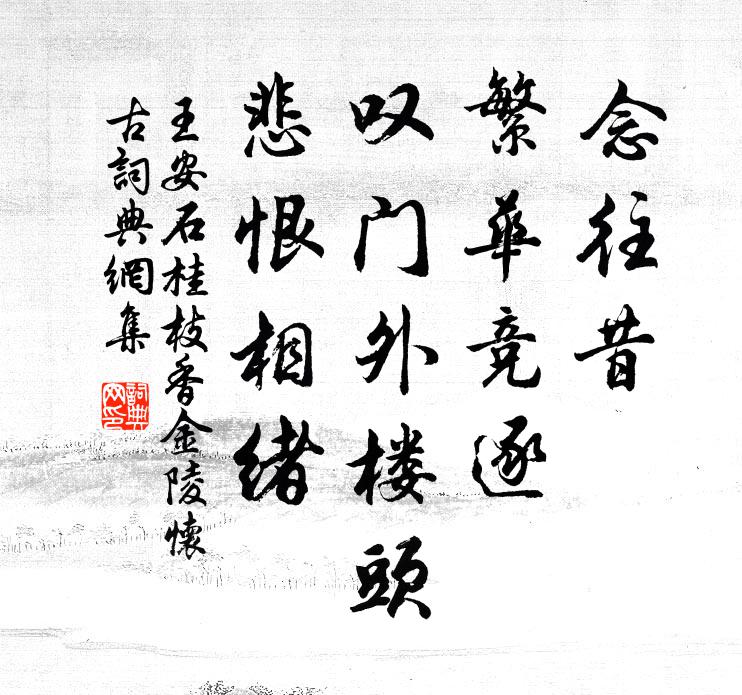 念往昔
繁華竞逐
叹门外楼頭
悲恨相绪
王安石桂枝香金陵懷
古詞典網集
詞典网印